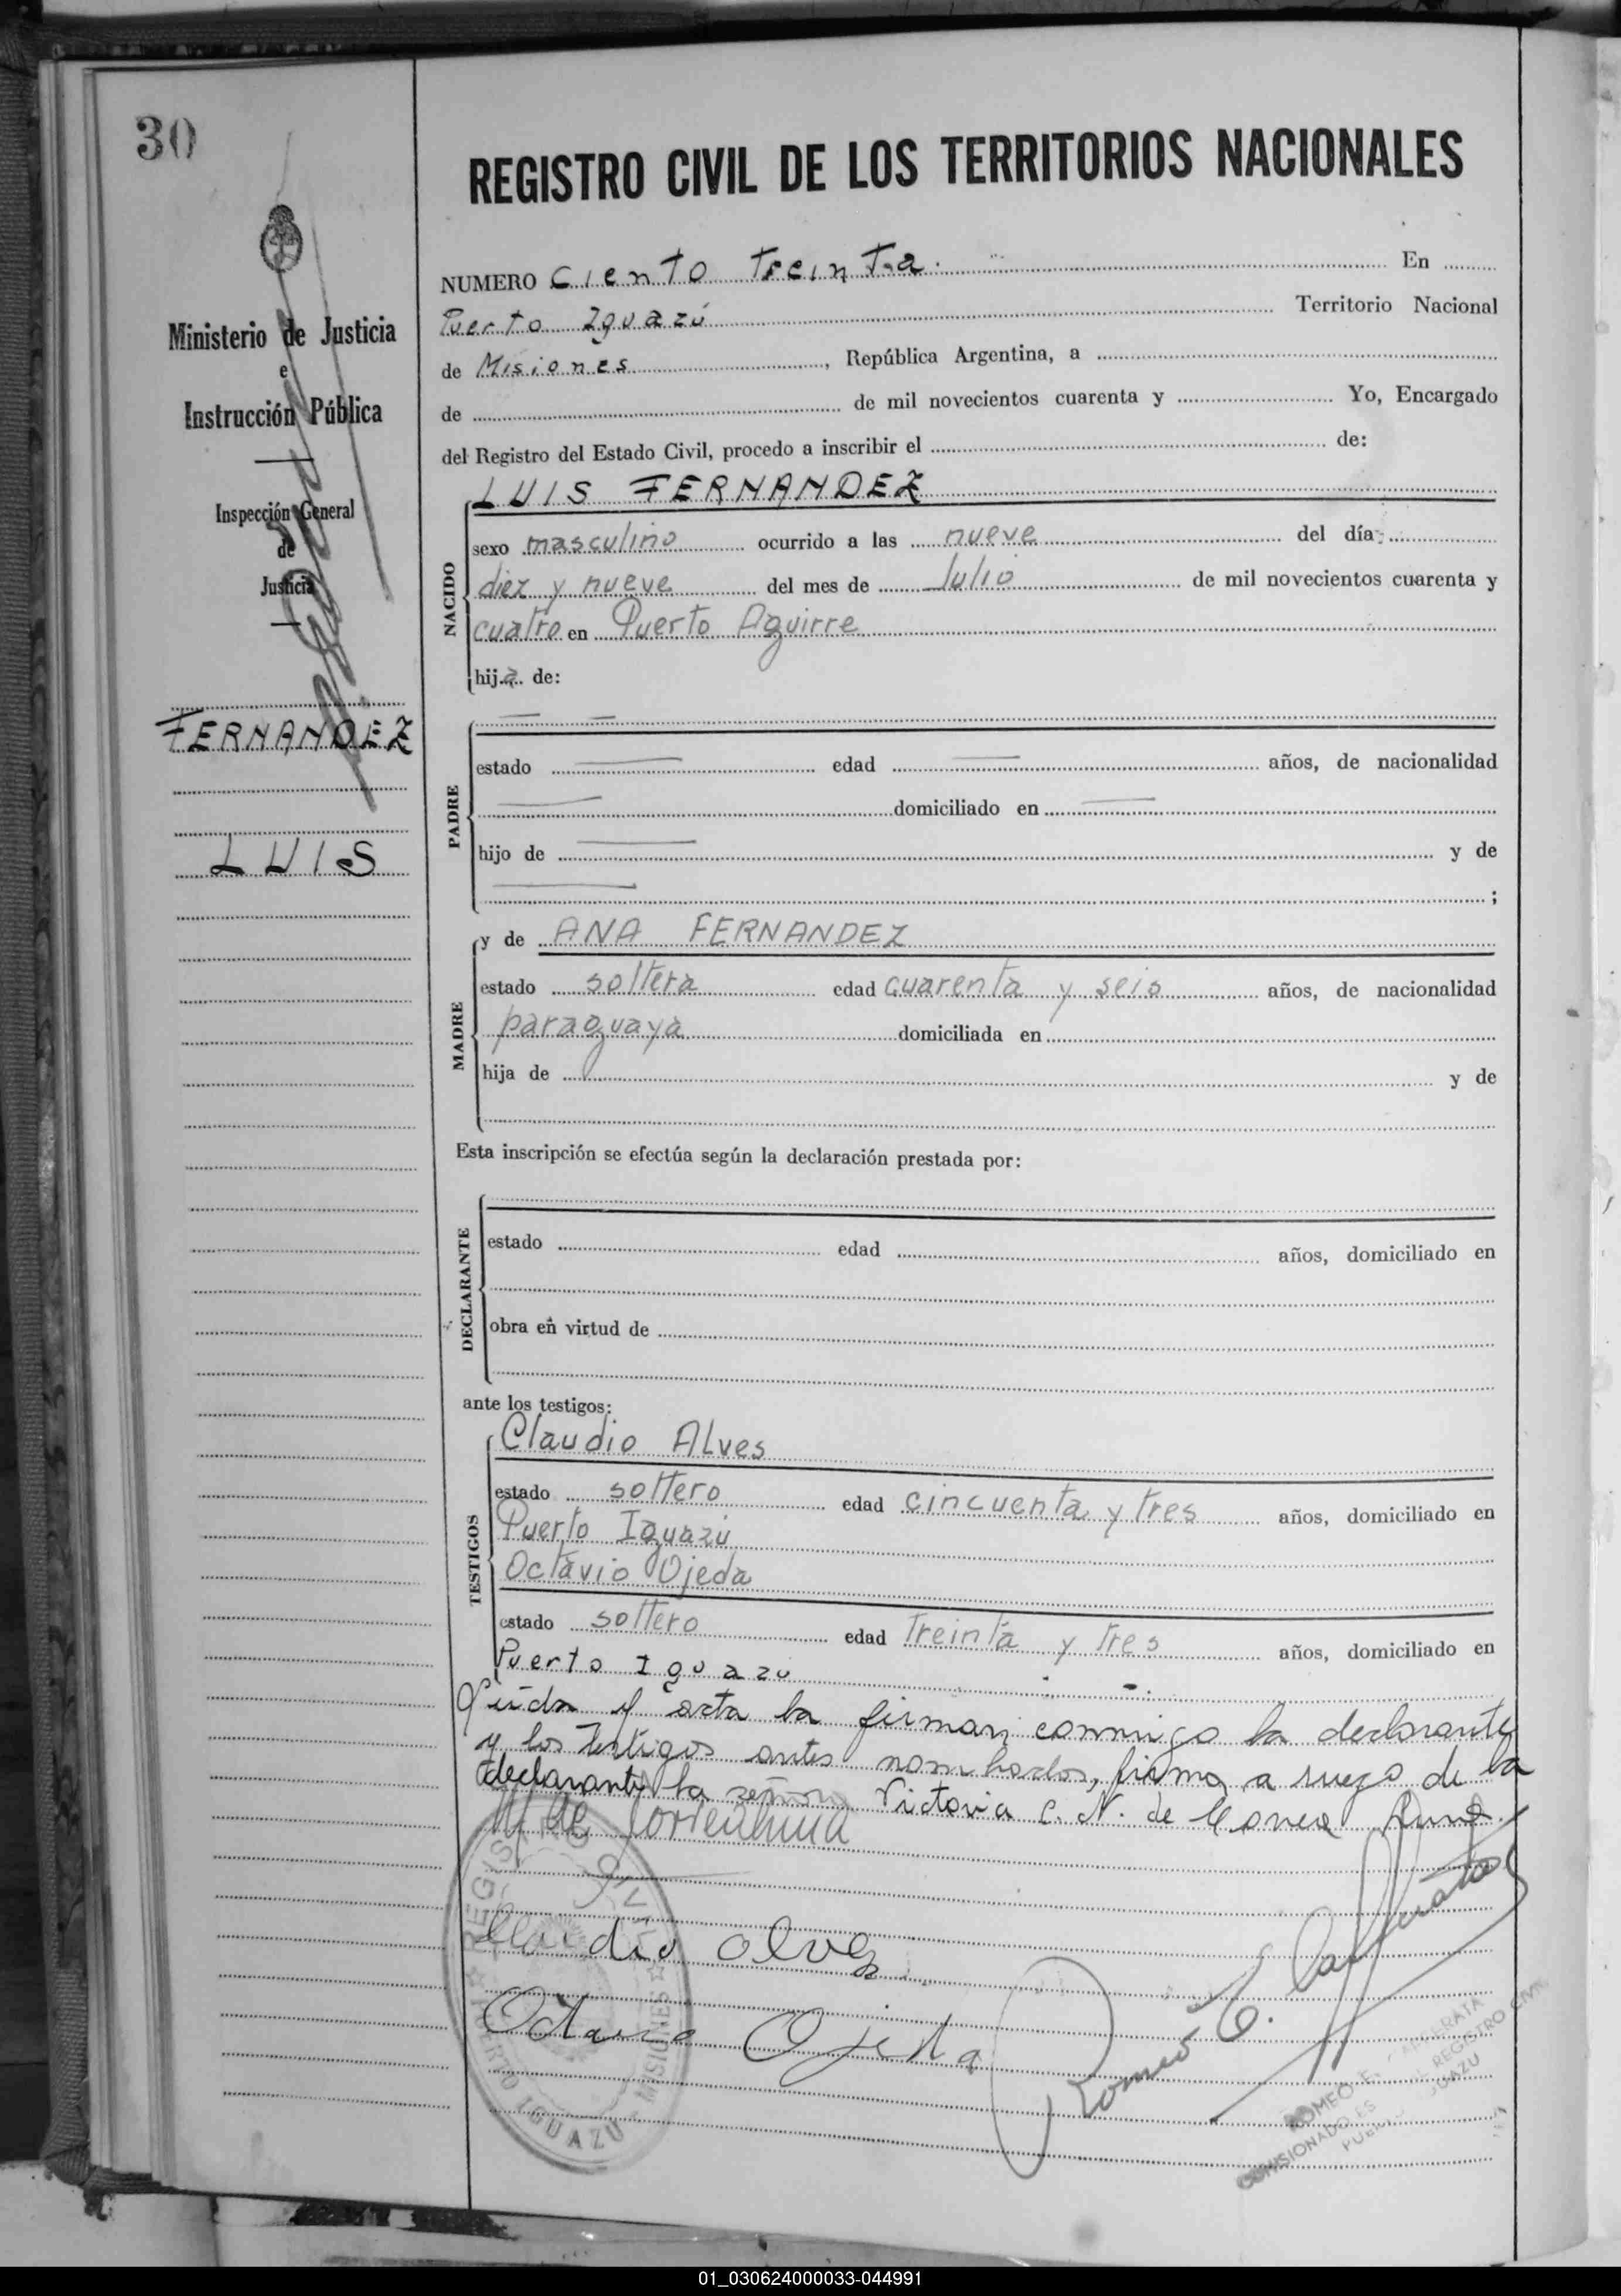 30
REGISTRO CIVIL DE LOS TERRITORIOS NACIONALES
Ministerio de Justicia
e
Instrucción Pública
Inspección General
de
Justicia
FERNANDEZ
LUIS
NUMERO Ciento Treinta. En
Puerto Iguazú Territorio Nacional
de Misiones, República Argentina, a
de de mil novecientos cuarenta y Yo, Encargado
del Registro del Estado Civil, procedo a inscribir el de:
LUIS FERNANDEZ
NACIDO
sexo masculino ocurrido a las nueve del día
diez y nueve del mes de Julio de mil novecientos cuarenta y
cuatro en Puerto Aguirre
hija de:
PADRE
estado edad años, de nacionalidad
domiciliado en
hijo de y de
;
MADRE
y de ANA FERNANDEZ
estado soltera edad cuarenta y seis años, de nacionalidad
paraguaya domiciliada en
hija de y de
Esta inscripción se efectúa según la declaración prestada por:
DECLARANTE
estado edad años, domiciliado en
obra en virtud de
ante los testigos:
TESTIGOS
Claudio Alves
estado soltero edad cincuenta y tres años, domiciliado en
Puerto Iguazú
Octavio Ojeda
estado soltero edad treinta y tres años, domiciliado en
Puerto Iguazu
acta la firman conmigo la declarante
y los testigos antes nombrados, firma a ruego de la
declarante la Victoria C. N. de
Claudio Alves
Octavio Ojeda
Romeo E.
REGISTRO CIVIL
PUERTO IGUAZU MISIONES
ROMEO E.
REGISTRO CIVIL
01_030624000033-044991